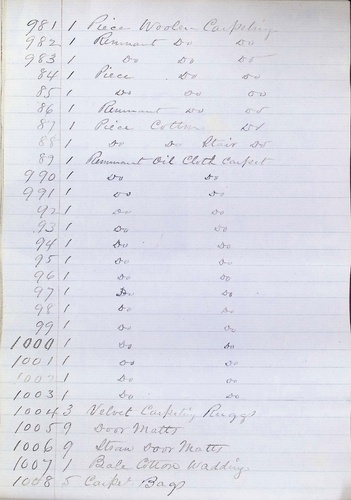 981 1 Piece Woolen Carpeting
982 1 Remnant Do Do
983 1 Do Do Do
84 1 Piece Do Do
85 1 Do Do Do
86 1 Remnant Do Do
87 1 Piece Cotton Do
88 1 Do Do Stair Do
89 1 Remnant Oil Cloth Carpet
990 1 Do Do
991 1 Do Do
92 1 Do Do
93 1 Do Do
94 1 Do Do
95 1 Do Do
96 1 Do Do
97 1 Do Do
98 1 Do Do
99 1 Do Do
1000 1 Do Do
1001 1 Do Do
1002 1 Do Do
1003 1 Do Do
1004 3 Velvet Carpeting Ruggs
1005 9 Door Matts
1006 9 Straw Door Matts
1007 1 Bale Cotton Wadding
1008 5 Carpet Bags